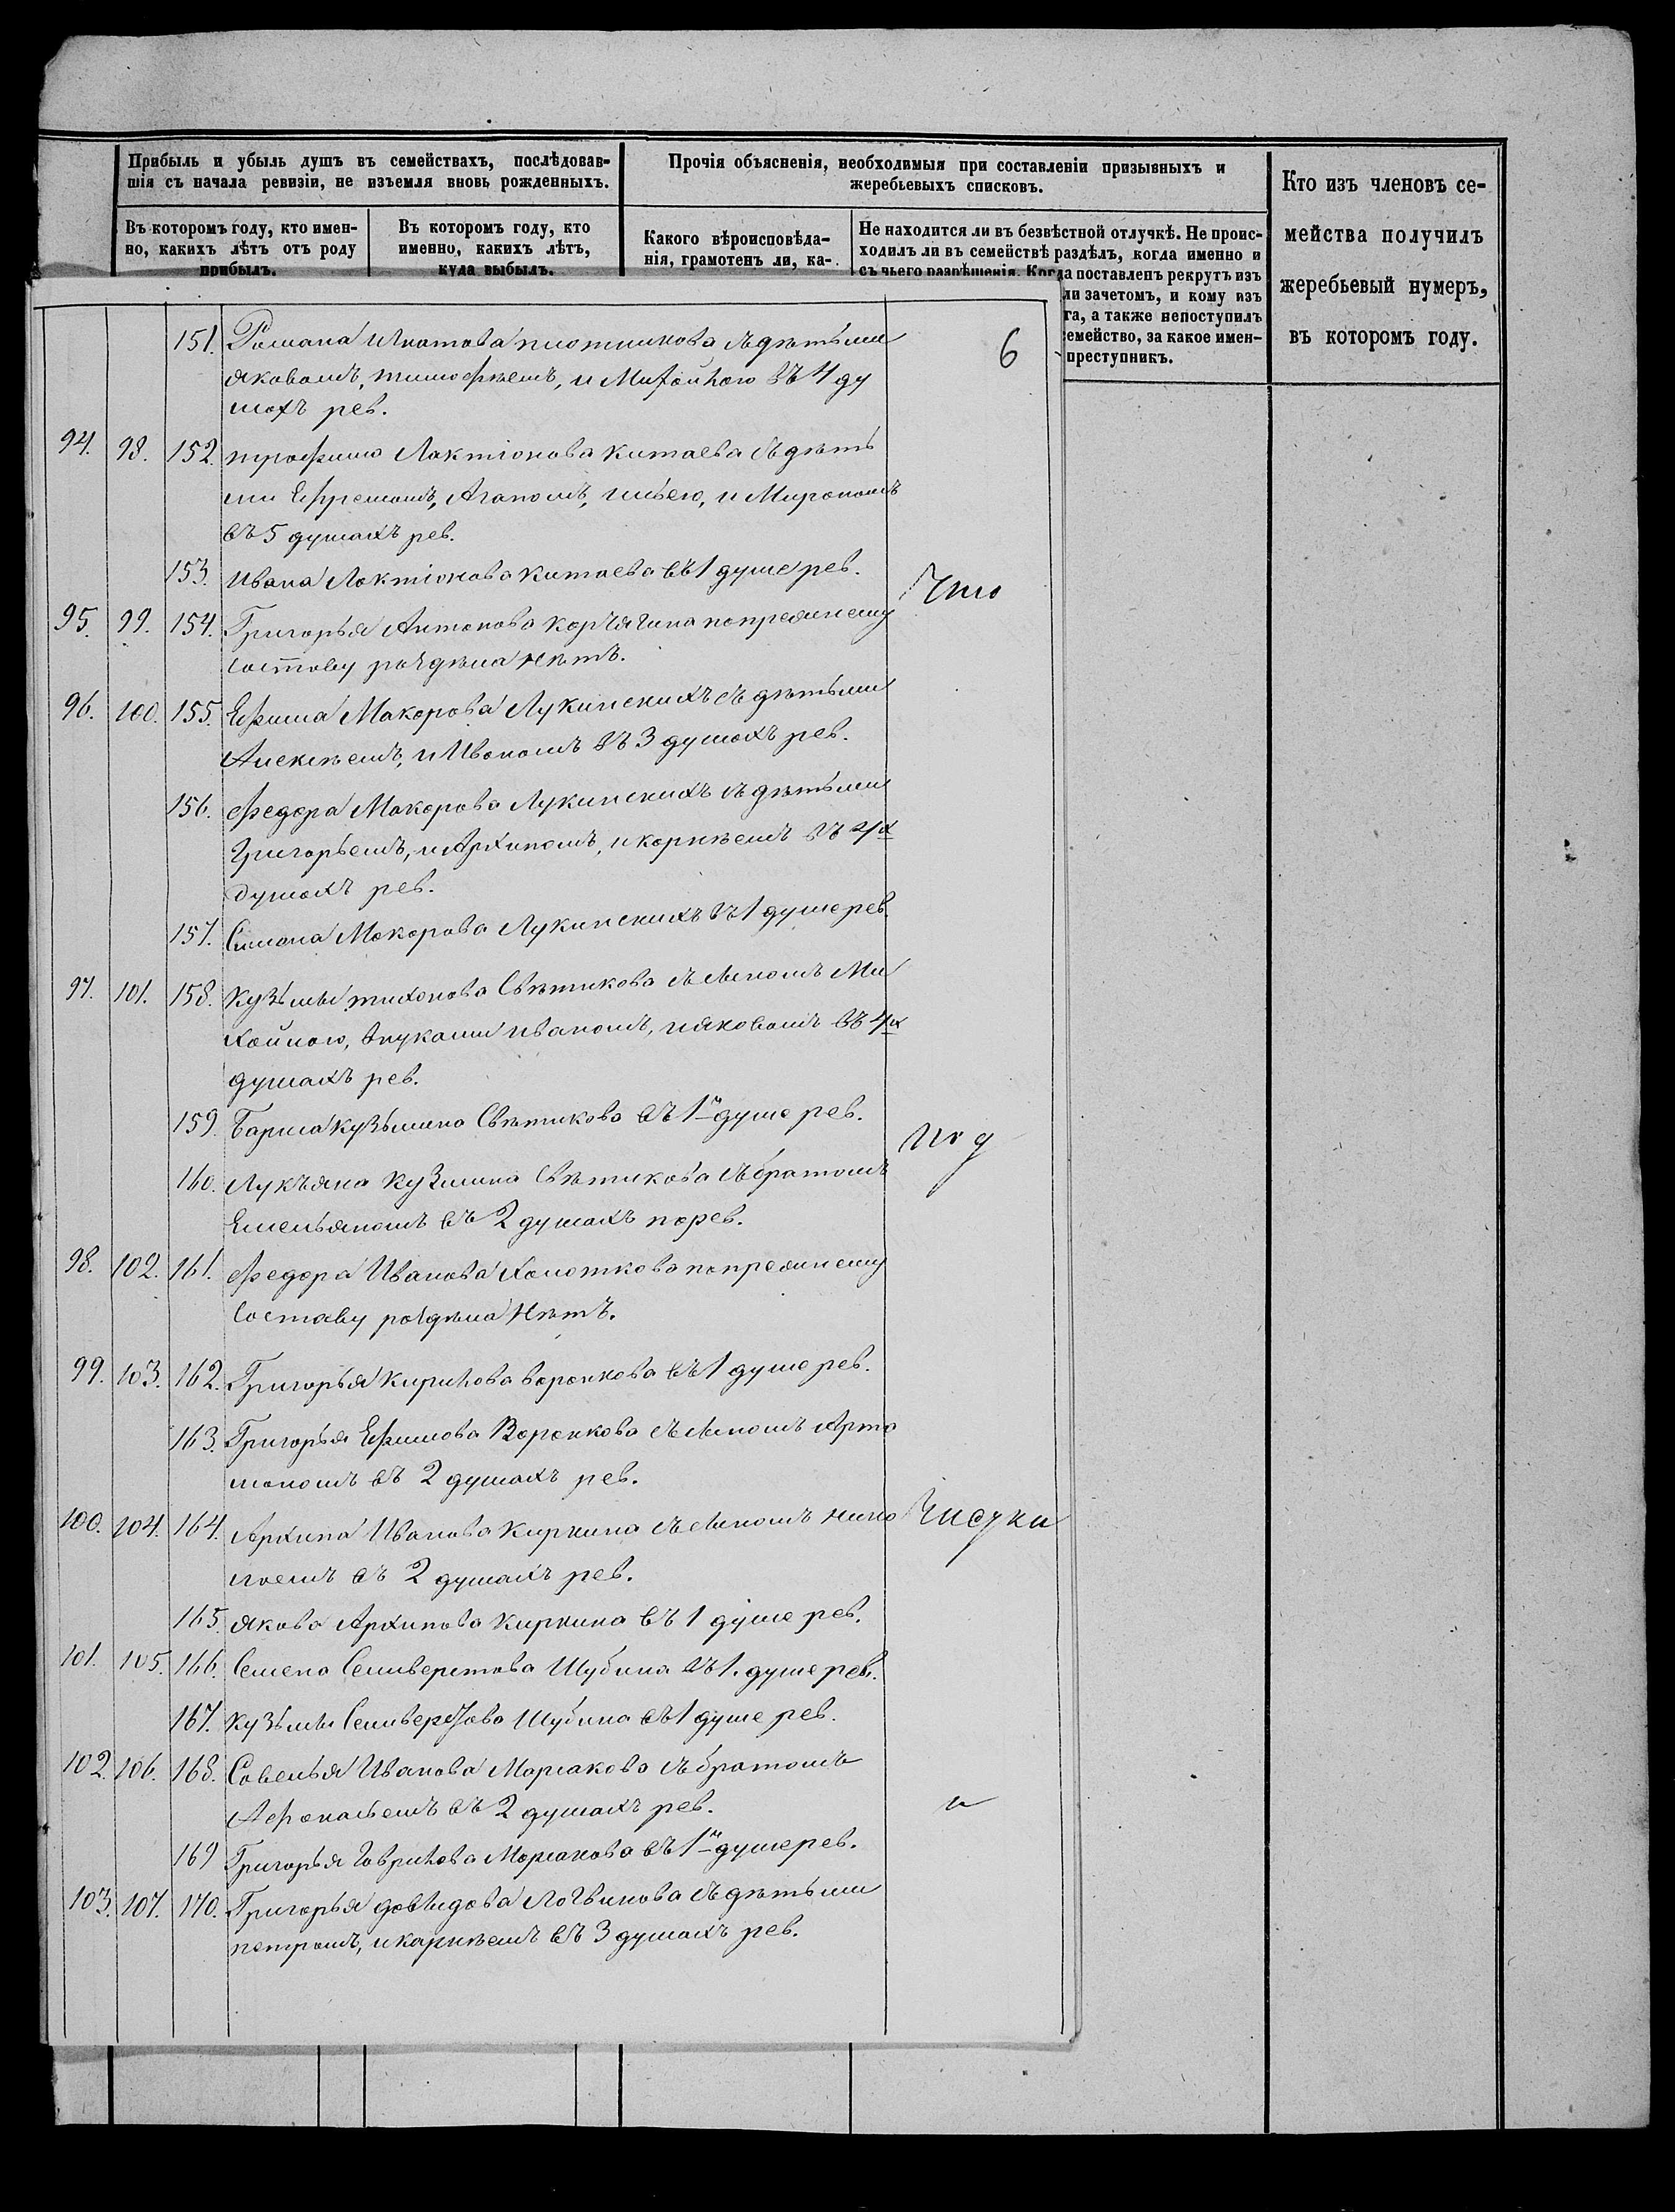 Прибыль и убыль душъ въ семействахъ, послѣдовав-
шія съ начала ревизіи, не изъемля вновь рожденныхъ.
Въ которомъ году, кто имен-
но, какихъ лѣтъ отъ роду
прибылъ.
Въ которомъ году, кто
именно, какихъ лѣтъ,
куда выбылъ.
Прочія объясненія, необходимыя при составленіи призывныхъ и
жеребьевыхъ списковъ.
Какого вѣроисповѣда-
нія, грамотенъ ли, ка-
Не находится ли въ безвѣстной отлучкѣ. Не проис-
ходилъ ли въ семействѣ раздѣлъ, когда именно и
съ чьего разрѣшенія. Когда поставленъ рекрутъ изъ
ли зачетомъ, и кому изъ
га, а также непоступилъ
семейство, за какое имен-
преступникъ.
Кто изъ членовъ се-
мейства получилъ
жеребьевый нумеръ,
въ которомъ году.
6
151. Романа Игнатова плотникова съ дѣтьми
яковомъ, тимофѣемъ, и Михайлою въ 4 ду
шахъ рев.
94. 98. 152. трофима Лактіонова китаева съ дѣть
ми Ефремомъ, Агапомъ, ильею, и Мирономъ
въ 5 душахъ рев.
153. ивана Лактіонова китаева въ 1 душе рев.
95. 99. 154. Григорья Антонова корчагина попрежнему
составу раздѣла нѣтъ.
96. 100. 155. Ефима Макарова Лукинскихъ съ дѣтьми
Алексѣемъ, и Иваномъ въ 3 душахъ рев.
156. федора Макарова Лукинскихъ съ дѣтьми
Григорьемъ, и Архипомъ, и корнѣемъ въ 4х
душахъ рев.
157. Симона Макарова Лукинскихъ въ 1 душе рев.
97. 101. 158. кузьмы тихонова Свѣтикова съ сыномъ Ми
хайлою, внуками иваномъ, и яковомъ въ 4х
душахъ рев.
159. Бориса кузьмина Свѣтикова въ 1й душе рев.
160. Лукьяна кузмина Свѣтикова съ братомъ
Емельяномъ въ 2 душахъ по рев.
98. 102. 161. федора Иванова Колоткова попрежнему
составу раздѣла нѣтъ.
99. 103. 162. Григорья кирилова воронкова въ 1 душе рев.
163. Григорья Ефимова Воронкова съ сыномъ Арта
мономъ въ 2 душахъ рев.
100. 104. 164. Архипа Иванова киркина съ сыномъ нико
лаемъ въ 2 душахъ рев.
165. якова Архипова киркина въ 1 душе рев.
101. 105. 166. Семена Семиверстова Шубина въ 1. душе рев.
167. кузьмы Семиверстова Шубина въ 1 душе рев.
102. 106. 168. Савелья Иванова Марсакова съ братомъ
Афонасьемъ въ 2 душахъ рев.
169 Григорья Гаврилова Марсакова въ 1й душе рев.
103. 107. 170. Григорья давыдова Логвинова съ дѣтьми
петромъ, и карнѣемъ въ 3 душахъ рев.